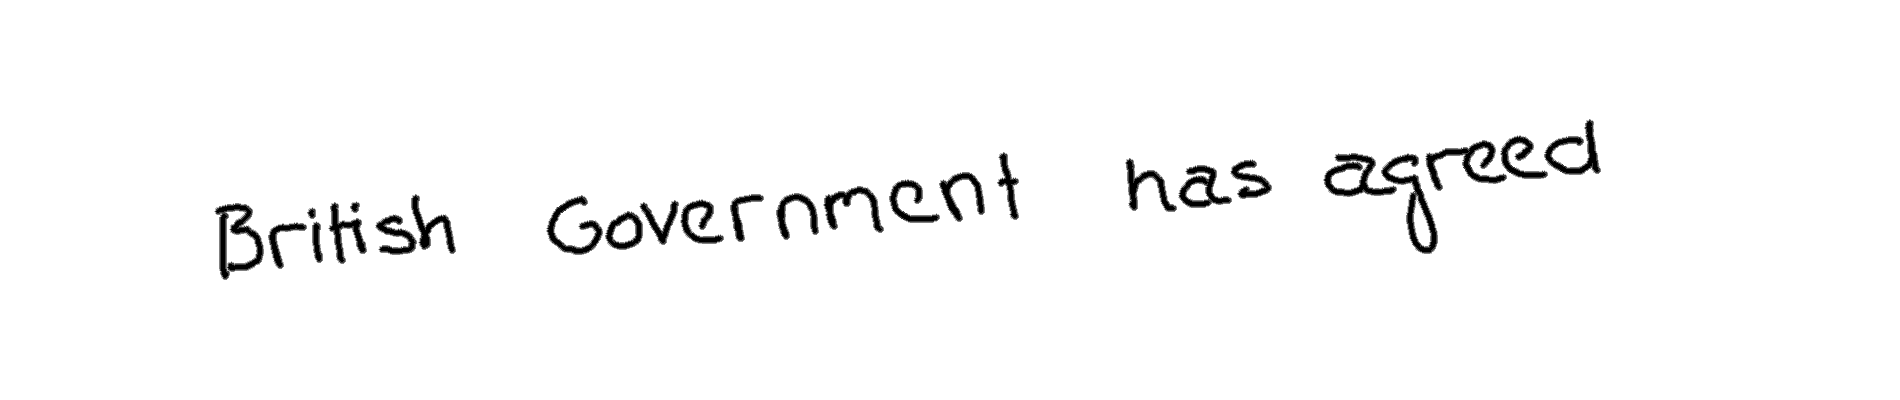 British Government has agreed